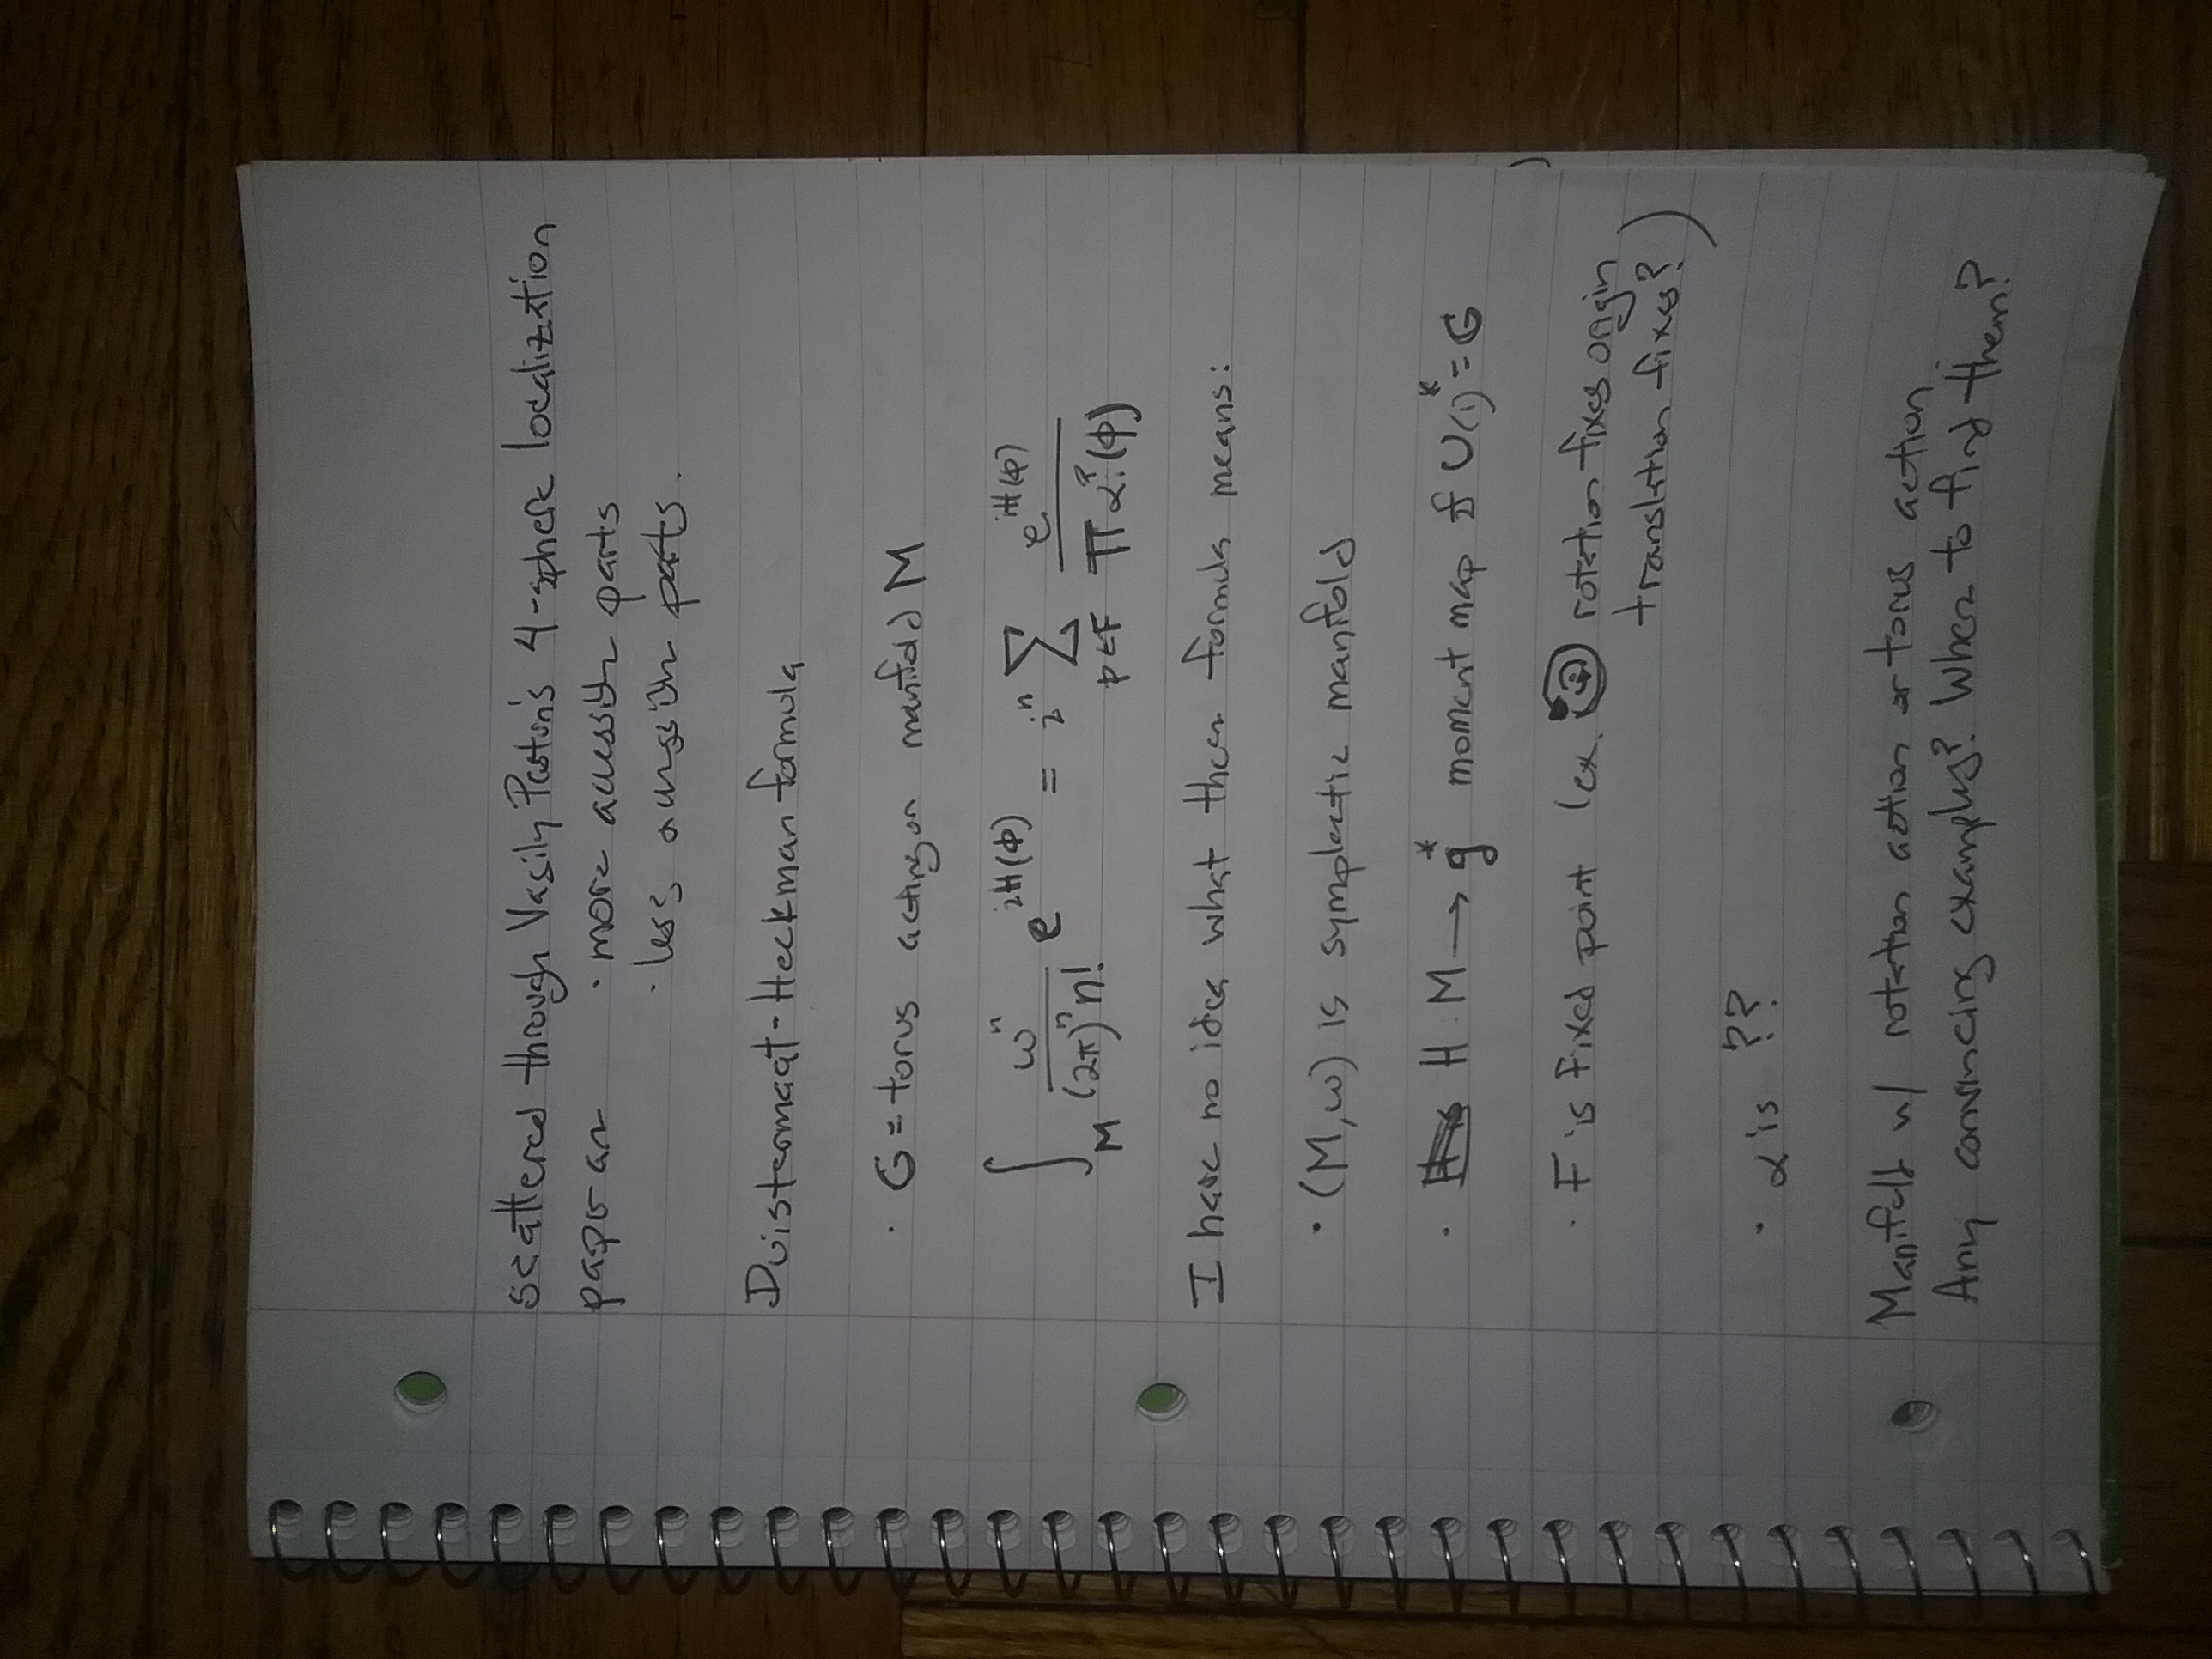 scattered through Vasily Pestun's 4-sphere localization
paper are · more accessible parts
· less accessible parts.
Duistermaat-Heckman formula
· G = torus acting on manifold M
∫_M ω^n / ((2π)^n n!) e^{iH(φ)} = i^n Σ_{p∈F} e^{iH(φ)} / ∏ α_i^p(φ)
I have no idea what formula means:
· (M,ω) is symplectic manifold
· H: M → g* moment map if U(1)^k = G
· F is fixed point (ex. rotation fixes origin
translation fixes?)
· α is ??
Manifold w/ rotation action or torus action.
Any convincing examples? Where to find them?